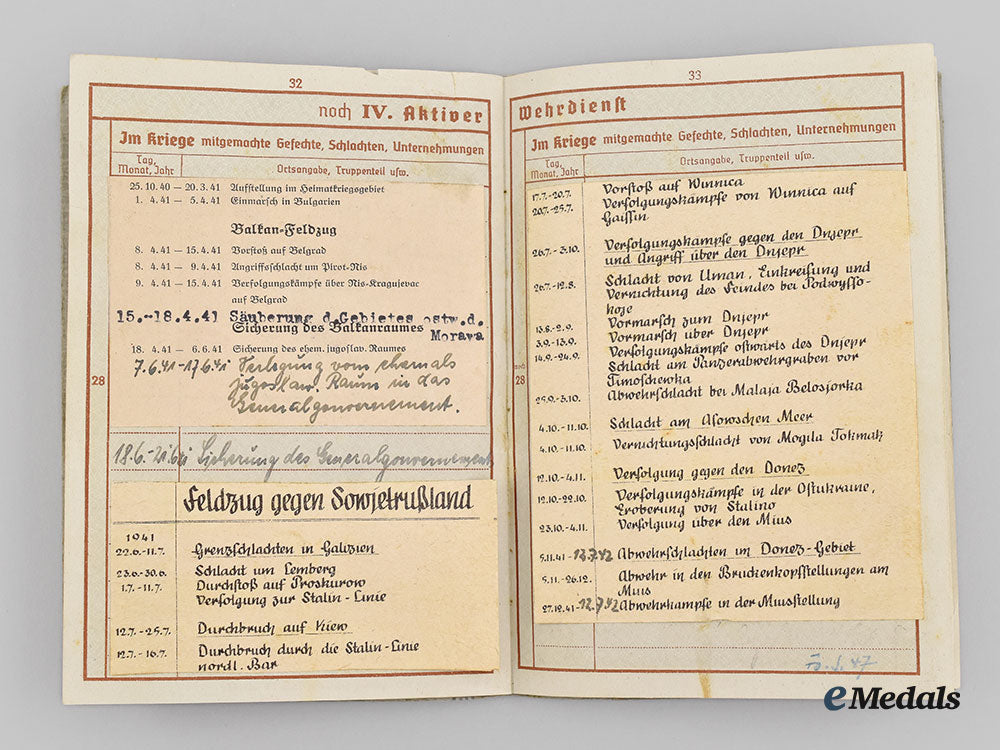 32
noch IV. Aktiver
Im Kriege mitgemachte Gefechte, Schlachten, Unternehmungen
Tag, Monat, Jahr
Ortsangabe, Truppenteil usw.
25.10.40 – 20.3.41 Aufstellung im Heimatkriegsgebiet
1. 4.41 – 5.4.41 Einmarsch in Bulgarien
Balkan-Feldzug
8. 4.41 – 15.4.41 Vorstoß auf Belgrad
8. 4.41 – 9.4.41 Angriffsschlacht um Pirot-Nis
9. 4.41 – 15.4.41 Verfolgungskämpfe über Nis-Kragujevac
auf Belgrad
15.-18.4.41 Säuberung d.Gebietes ostw.d.
Morava
Sicherung des Balkanraumes
18. 4.41 – 6.6.41 Sicherung des ehem. jugoslav. Raumes
7.6.41-17.6.41 Verlegung vom ehemals
jugoslaw. Raum in das
Generalgouvernement.
28
18.6.-21.6.41 Sicherung des Generalgouvernement
Feldzug gegen Sowjetrußland
1941
22.6.-11.7. Grenzschlachten in Galizien
23.6.-30.6. Schlacht um Lemberg
1.7.-11.7. Durchstoß auf Proskurow
Verfolgung zur Stalin-Linie
12.7.-25.7. Durchbruch auf Kiew
12.7.-16.7. Durchbruch durch die Stalin-Linie
nördl. Bar
33
Wehrdienst
Im Kriege mitgemachte Gefechte, Schlachten, Unternehmungen
Tag, Monat, Jahr
Ortsangabe, Truppenteil usw.
17.7.-20.7. Vorstoß auf Winnica
20.7.-25.7. Verfolgungskämpfe von Winnica auf
Gaissin
26.7.-3.10. Verfolgungskämpfe gegen den Dnjepr
und Angriff über den Dnjepr
26.7.-12.8. Schlacht von Uman, Einkreisung und
Vernichtung des Feindes bei Podwysso-
koje
13.8.-2.9. Vormarsch zum Dnjepr
3.9.-13.9. Vormarsch über Dnjepr
14.9.-24.9. Verfolgungskämpfe ostwärts des Dnjepr
Schlacht am Panzerabwehrgraben vor
Timoschenka
25.9.-3.10. Abwehrschlacht bei Malaja Belosjorka
4.10.-11.10. Schlacht am Asowschen Meer
4.10.-11.10. Vernichtungsschlacht von Mogila Tokmak
12.10.-4.11. Verfolgung gegen den Donez
12.10.-22.10. Verfolgungskämpfe in der Ostukraine,
Eroberung von Stalino
23.10.-4.11. Verfolgung über den Mius
5.11.41-12.7.42 Abwehrschlachten im Donez-Gebiet
5.11.-26.12. Abwehr in den Brückenkopfstellungen am
Mius
27.12.41-12.7.42 Abwehrkämpfe in der Miusstellung
noch
28
eMedals